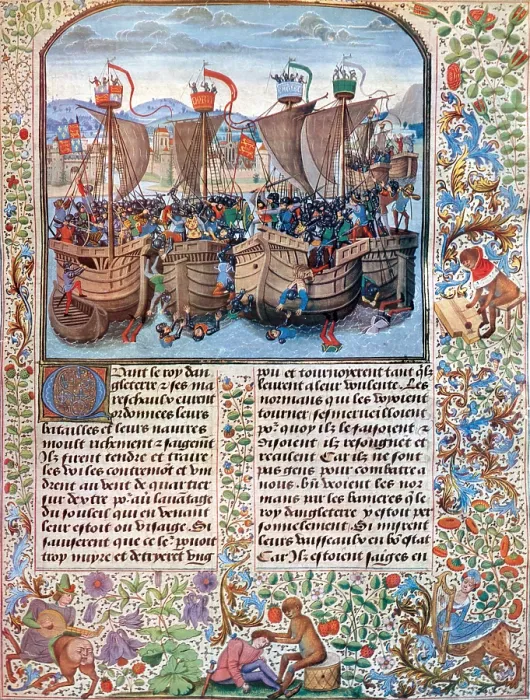 Quant le roy dan
gleterre & ses ma
reschaulx eurent
ordonnees leurs
batailles et leurs navires
moult richement & sagemēt
Ilz firent tendre et traire
les voiles contremōt et vin
drent au vent de quartier
sur dextre po² auoir lauātage
du souleil qui en venant
leur estoit ou visaige. Si
sauiserent que ce le² pouoit
trop nuyre et detryerēt ung
pou et tournoyerent tant qlz
leurent a leur voulente. Les
normans qui les veoyent
tourner sesmerueilloient
po² quoy ilz le faisoient &
Disoient ilz resongnēt et
reculent Car ilz ne sont
pas gens pour combatre a
nous. bn̄ veoient les nor
mans par les banieres q̄ le
roy dangleterre y estoit per
sonnelement. Si misrent
leurs vaisseaulx en bō estat
Car Ilz estoient saiges en